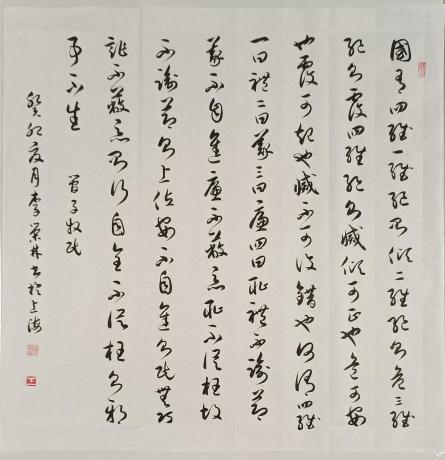 國有四維一維絕則傾二維絕則危三維
絕則覆四維絕則滅傾可正也危可安
也覆可起也滅不可復錯也何謂四維
一曰禮二曰義三曰廉四曰恥禮不踰節
義不自進廉不蔽惡恥不從枉故
不踰節則上位安不自進則民無巧
詐不蔽惡則行自全不從枉則邪
事不生 管子牧民
癸卯夏月李榮林書於上海